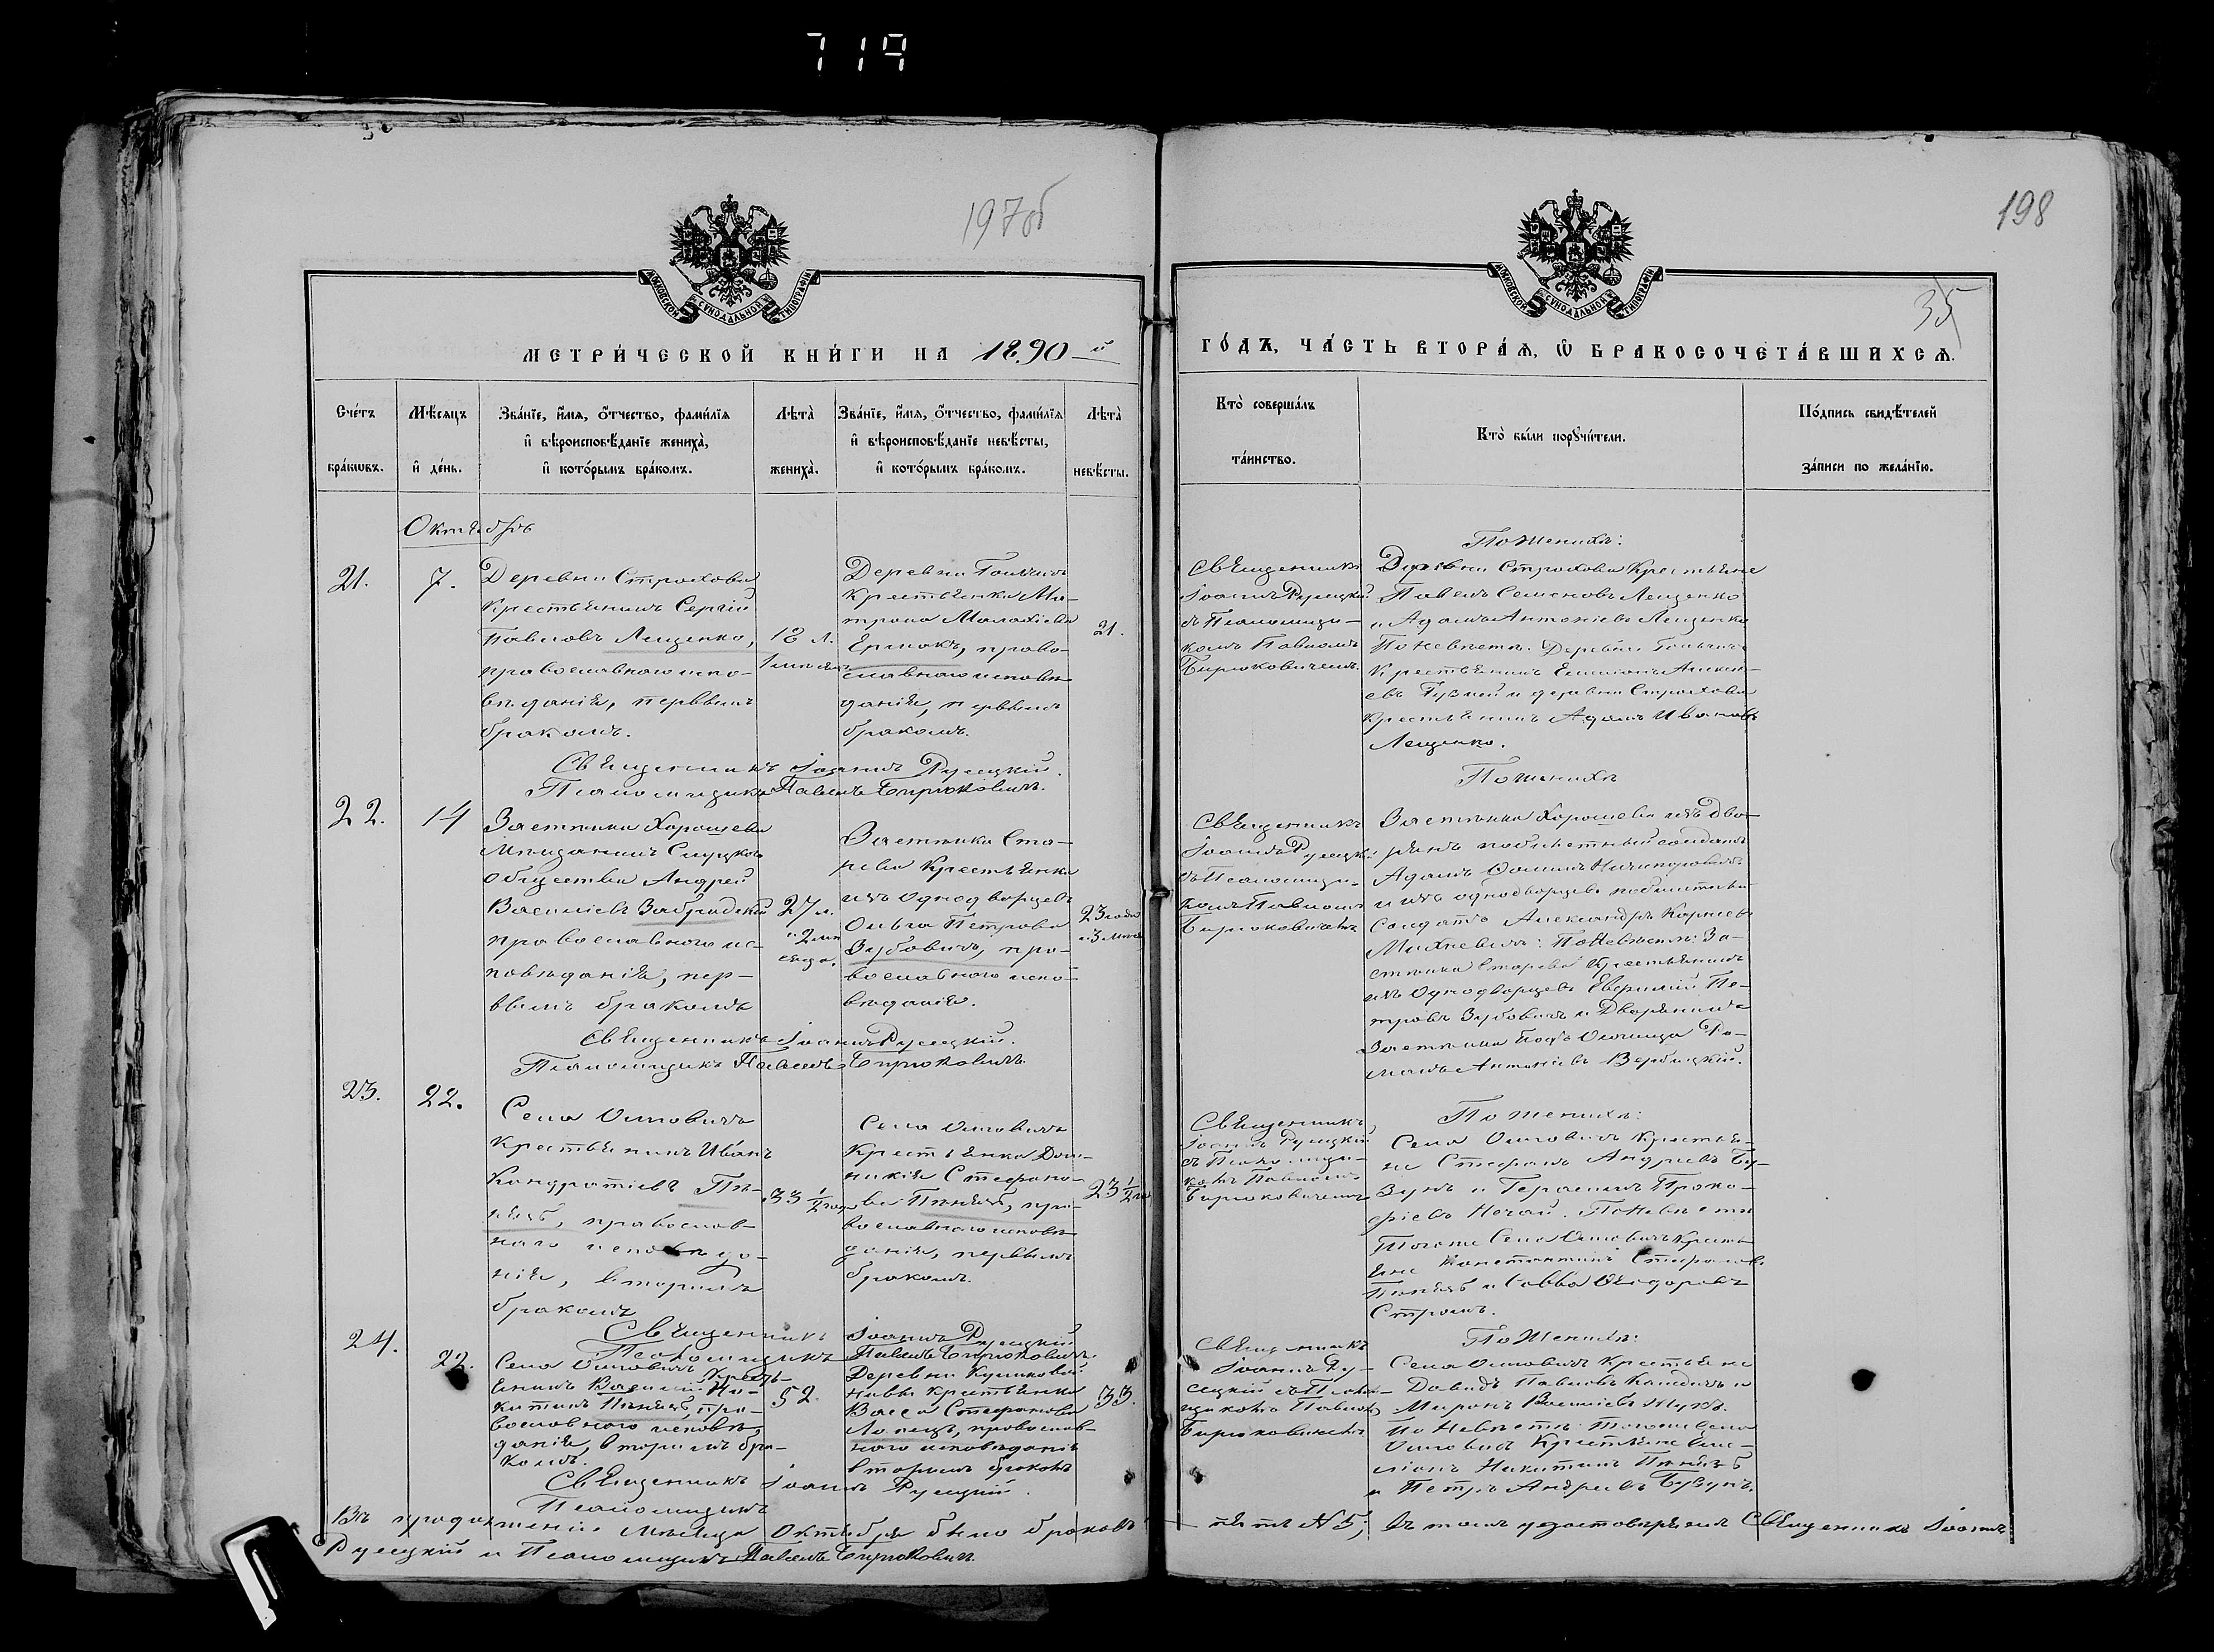 719
197об
198
35
МОСКОВСКОЙ СѴНОДАЛЬНОЙ ТИПОГРАФІИ
МОСКОВСКОЙ СѴНОДАЛЬНОЙ ТИПОГРАФІИ
МЕТРИ́ЧЕСКОЙ КНИ́ГИ НА 1890 й
ГО́ДЪ, ЧА́СТЬ ВТОРА́Ѧ, Ѿ БРАКОСОЧЕТА́ВШИХСѦ.
Сче́тъ
бра́кѡвъ.
Мѣ́сѧцъ
и҆ де́нь.
Зва́нїе, и҆́мѧ, ѻ҆́тчество, фами́лїѧ
и҆ вѣроисповѣ́данїе жениха̀,
и҆ кото́рымъ бра́комъ.
Лѣта̀
жениха̀.
Зва́нїе, и҆́мѧ, ѻ҆́тчество, фами́лїѧ
и҆ вѣроисповѣ́данїе невѣ́сты,
и҆ кото́рымъ бра́комъ.
Лѣта̀
невѣ́сты.
Кто̀ соверша́лъ
та́инство.
Кто̀ бы́ли порꙋчи́тели.
По́дпись свидѣ́телей
за́писи по жела́нїю.
Октябрь
21.
7.
Деревни Строхова
Крестьянинъ Сергій
Павловъ Лещенко,
православнаго испо-
вѣданія, первымъ
бракомъ.
18 л.
Деревни
Крестьянка Ма-
трона Малахіева
Ермакъ, право-
славнаго исповѣ
данія, первымъ
бракомъ.
21.
Священникъ
Іоаннъ Русецкій
съ Псаломщи-
комъ Павломъ
Бирюковичемъ.
По женихѣ:
Деревни Строхова Крестьяне
Павелъ Семеновъ Лещенко
и Адамъ Антоніевъ Лещенко
По невѣстѣ: Деревни
Крестьянинъ
и деревни Строхова
крестьянинъ Адамъ Ивановъ
Лещенко.
Священникъ Іоаннъ Русецкій.
Псаломщикъ Павелъ Бирюковичъ.
22.
14
Застѣнка Хорошева
Мѣщанинъ Слуцкаго
Общества Андрей
Василіевъ Забродскій
православнаго ис-
повѣданія, пер-
вымъ бракомъ
27 л.
и 2 мѣ
сяца.
Застѣнка Ста-
рева Крестьянка
изъ Однодворцевъ
Ольга Петрова
Зубовичъ, пра-
вославнаго испо-
вѣданія.
23 года
и 3 мѣся
Священникъ
Іоаннъ Русецкій
съ Псаломщи-
комъ Павломъ
Бирюковичемъ
По женихѣ
Застѣнка Хорошева изъ Дво-
рянъ солдатъ
Адамъ Фоминъ
и изъ однодворцевъ
Солдатъ Александръ Карніевъ
Михневичъ: По невѣстѣ: За-
стѣнка Старева Крестьянинъ
изъ Однодворцевъ Пе-
тровъ Зубовичъ и Дворянинъ
Застѣнка Ро-
манъ Антоніевъ Вербицкій.
Священникъ Іоаннъ Русецкій.
Псаломщикъ Павелъ Бирюковичъ.
23.
22.
Села Омговичъ
Крестьянинъ Иванъ
Кондратіевъ Пѣ-
нязь, православ-
наго исповѣда-
нія, вторымъ
бракомъ
33 ½ года
Села Омговичъ
Крестьянка Дом-
никія Стефано-
ва Пѣнязь, пра-
вославнаго исповѣ
данія, первымъ
бракомъ.
23 ½ го
Священникъ
Іоаннъ Русецкій
съ Псаломщи-
комъ Павломъ
Бирюковичемъ
По женихѣ:
Села Омговичъ Крестья-
не Стефанъ Андреевъ Бу-
зунъ и Герасимъ Проко-
фіевъ Нечай. По невѣстѣ
Тогоже Села Омговичъ Кресть-
яне Константинъ Стефановъ
Пѣнязь и Савва Ѳеодоровъ
Стромъ.
Священникъ Іоаннъ Русецкій
Псаломщикъ Павелъ Бирюковичъ.
24.
22.
Села Омговичъ Кресть-
янинъ Василій Ни-
китинъ Пѣнязь, пра-
вославнаго исповѣ-
данія, вторымъ бра-
комъ.
52.
Деревни Куликовой
Нивы крестьянка
Васса Стефанова
Лопецъ, православ-
наго исповѣданія
вторымъ бракомъ
33.
Священникъ
Іоаннъ Ру-
сецкій съ Псалом-
щикомъ Павломъ
Бирюковичемъ
По женихѣ:
Села Омговичъ Крестьяне
Давидъ Павловъ и
Миронъ Василіевъ
По невѣстѣ: Тогоже Села
Омговичъ Крестьяне
Никитинъ Пѣнязь
и Петръ Андреевъ Бузунъ.
Священникъ Іоаннъ Русецкій.
Псаломщикъ
Въ продолженіи мѣсяца Октября было браковъ — пять № 5, въ томъ удостовѣряемъ Священникъ Іоаннъ
Русецкій и Псаломщикъ Павелъ Бирюковичъ.